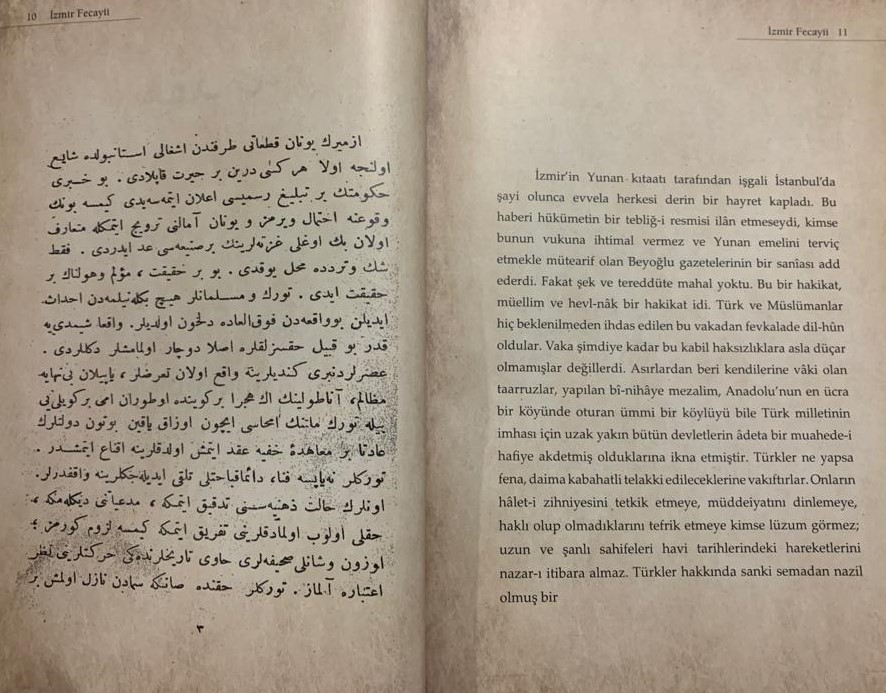 10 İzmir Fecayii
ازميرك يونان قطعاتى طرفندن اشغالى استانبولده شايع
اولنجه اولا هركسى درين بر حيرت قاپلادى . بو خبرى
حكومتك بر تبليغ رسميسى اعلان ايتمه‌سيدى كيمسه بونك
وقوعنه احتمال ويرمز و يونان آمالنى ترويج ايتمكله متعارف
اولان بك اوغلى غزته‌لرينك بر صنيعه‌سى عد ايدردى . فقط
شك و تردده محل يوقدى . بو بر حقيقت ، مؤلم وهولناك بر
حقيقت ايدى . تورك و مسلمانلر هيچ بكله‌نيلمه‌دن احداث
ايديلن بوواقعه‌دن فوق‌العاده دلخون اولديلر . واقعا شيمدى‌يه
قدر بو قبيل حقسزلقلره اصلا دوچار اولمامشلر دكللردى .
عصرلردنبرى كنديلرينه واقع اولان تعرضلر ، ياپيلان بى‌نهايه
مظالم ، آناطولينك اك هجرا بركوينده اوطوران امى بركويلى‌يى
بيله تورك ملتنك امحاسى ايچون اوزاق ياقين بوتون دولتلرك
عادتا بر معاهدهٔ خفيه عقد ايتمش اولدقلرينه اقناع ايتمشدر .
توركلر نه‌ياپسه فنا ، دائماقباحتلى تلقى ايديله‌جكلرينه واقفدرلر .
اونلرك حالت ذهنيه‌سنى تدقيق ايتمكه ، مدعياتنى ديكله‌مكه ،
حقلى اولوب اولمادقلرينى تفريق ايتمكه كيمسه لزوم كورمز ؛
اوزون و شانلى صحيفه‌لرى حاوى تاريخلرنده‌كى حركتلرينى نظر
اعتباره آلماز . توركلر حقنده صانكه سمادن نازل اولمش بر
٣
İzmir Fecayii 11
İzmir'in Yunan kıtaatı tarafından işgali İstanbul'da
şayi olunca evvela herkesi derin bir hayret kapladı. Bu
haberi hükümetin bir tebliğ-i resmisi ilân etmeseydi, kimse
bunun vukuna ihtimal vermez ve Yunan emelini terviç
etmekle mütearif olan Beyoğlu gazetelerinin bir sanîası add
ederdi. Fakat şek ve tereddüte mahal yoktu. Bu bir hakikat,
müellim ve hevl-nâk bir hakikat idi. Türk ve Müslümanlar
hiç beklenilmeden ihdas edilen bu vakadan fevkalade dil-hûn
oldular. Vaka şimdiye kadar bu kabil haksızlıklara asla düçar
olmamışlar değillerdi. Asırlardan beri kendilerine vâki olan
taarruzlar, yapılan bî-nihâye mezalim, Anadolu'nun en ücra
bir köyünde oturan ümmi bir köylüyü bile Türk milletinin
imhası için uzak yakın bütün devletlerin âdeta bir muahede-i
hafiye akdetmiş olduklarına ikna etmiştir. Türkler ne yapsa
fena, daima kabahatli telakki edileceklerine vakıftırlar. Onların
hâlet-i zihniyesini tetkik etmeye, müddeiyatını dinlemeye,
haklı olup olmadıklarını tefrik etmeye kimse lüzum görmez;
uzun ve şanlı sahifeleri havi tarihlerindeki hareketlerini
nazar-ı itibara almaz. Türkler hakkında sanki semadan nazil
olmuş bir